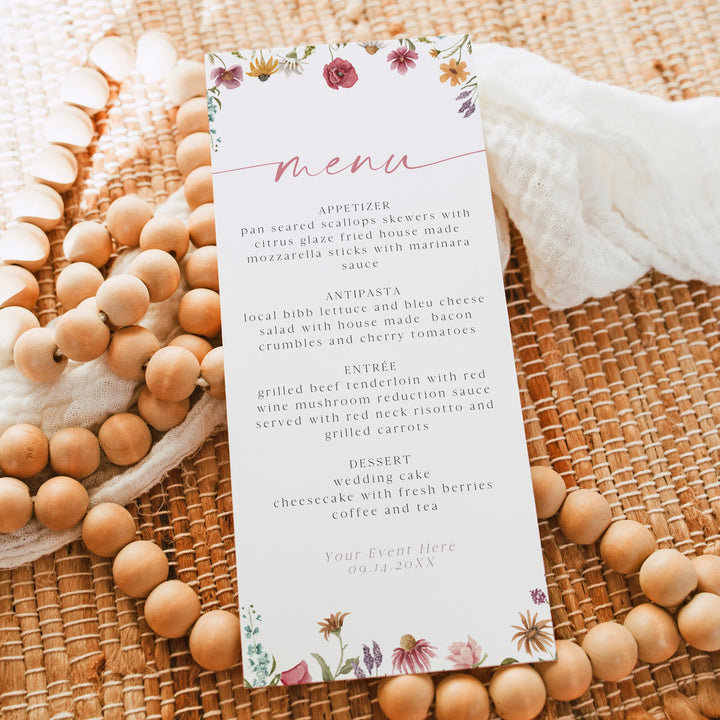 menu
APPETIZER
pan seared scallops skewers with
citrus glaze fried house made
mozzarella sticks with marinara
sauce
ANTIPASTA
local bibb lettuce and bleu cheese
salad with house made bacon
crumbles and cherry tomatoes
ENTRÉE
grilled beef tenderloin with red
wine mushroom reduction sauce
served with red neck risotto and
grilled carrots
DESSERT
wedding cake
cheesecake with fresh berries
coffee and tea
Your Event Here
09.14.20XX